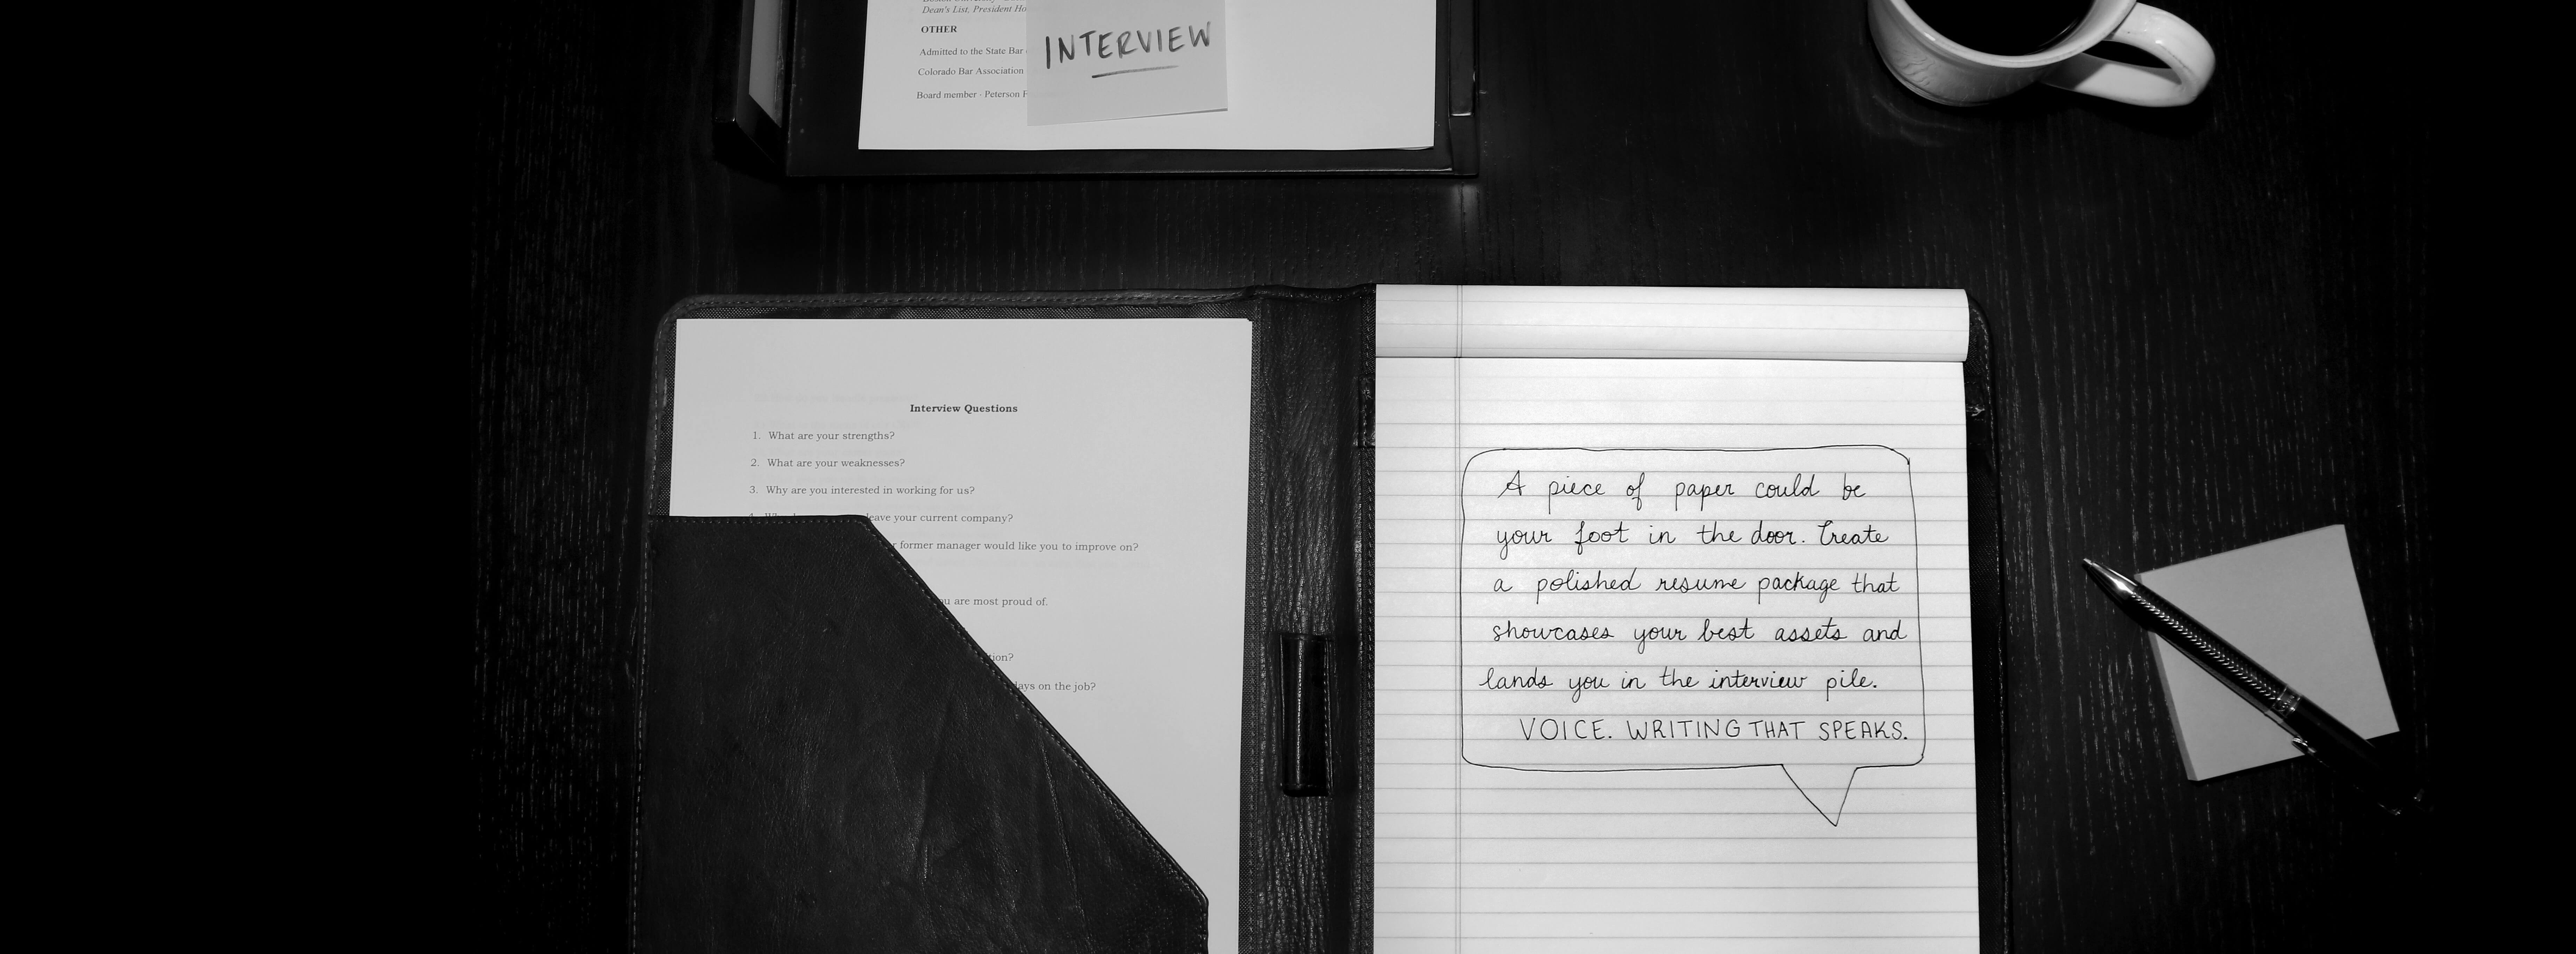 Dean's List, President Ho
OTHER
Admitted to the State Bar
Colorado Bar Association
Board member - Peterson F
INTERVIEW
Interview Questions
1. What are your strengths?
2. What are your weaknesses?
3. Why are you interested in working for us?
leave your current company?
former manager would like you to improve on?
you are most proud of.
tion?
days on the job?
A piece of paper could be
your foot in the door. Create
a polished resume package that
showcases your best assets and
lands you in the interview pile.
VOICE. WRITING THAT SPEAKS.